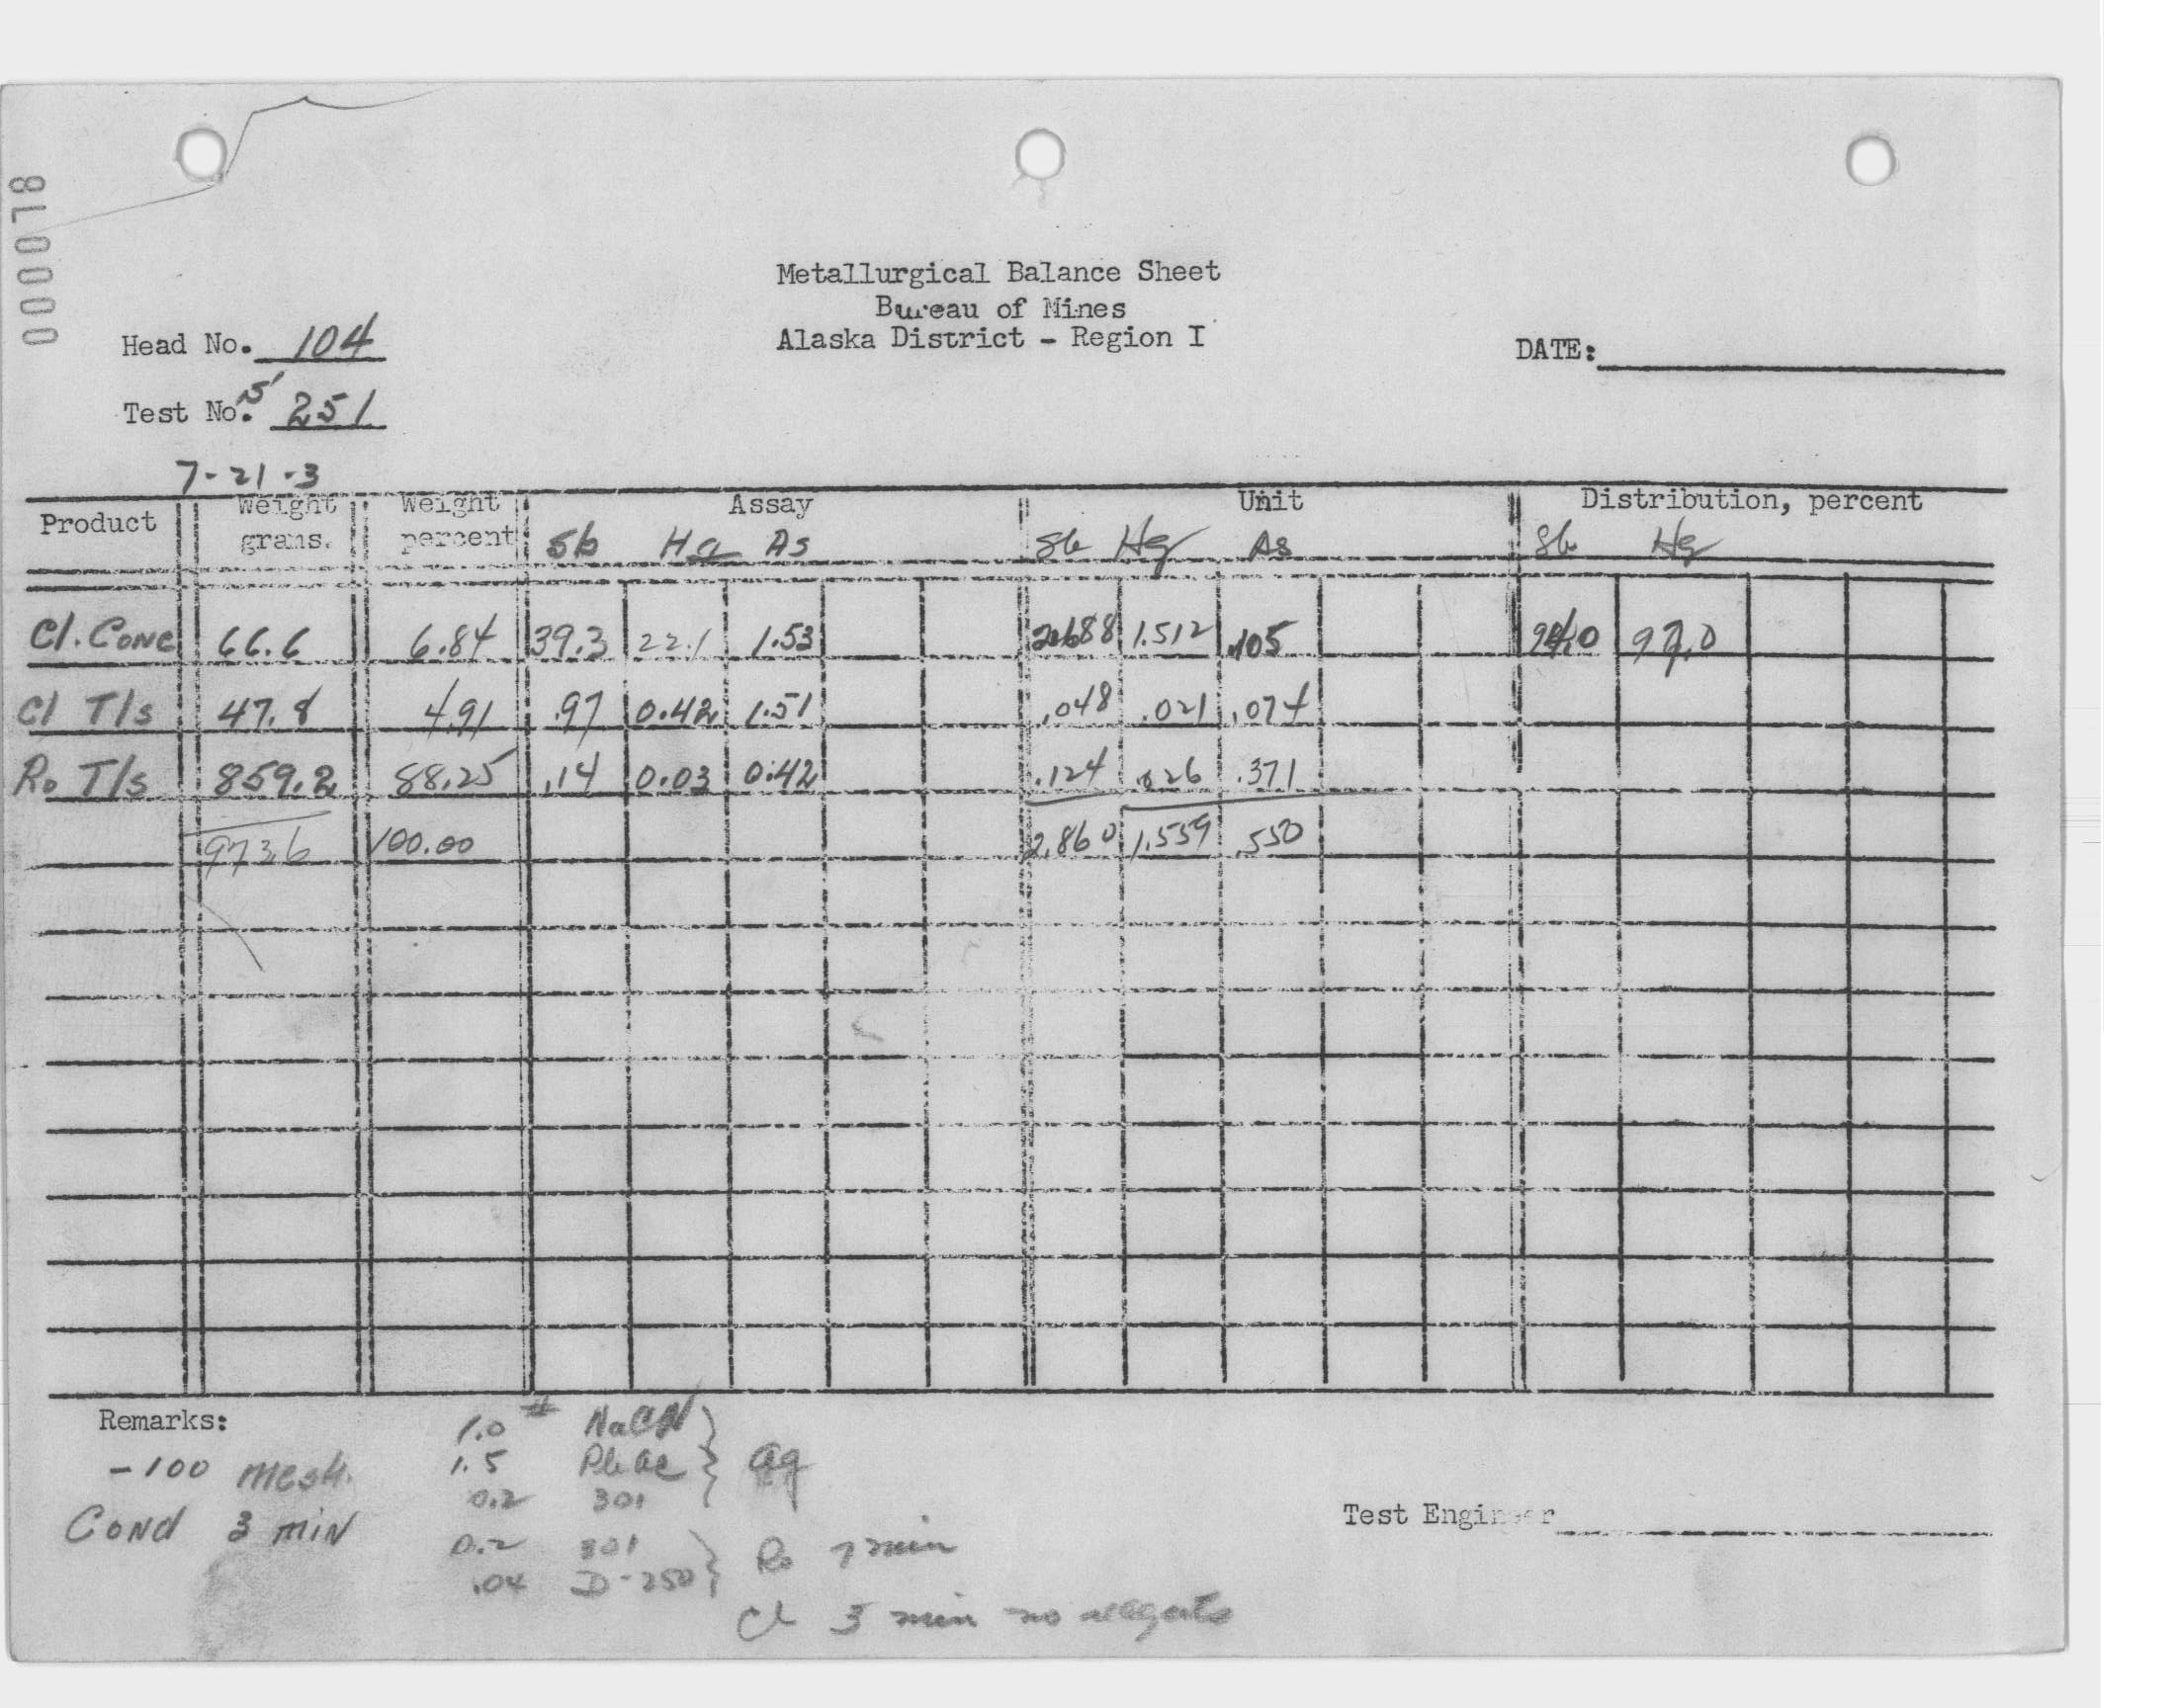 000078
Metallurgical Balance Sheet
Bureau of Mines
Alaska District - Region I
Head No. 104
DATE:
Test No. S 251
7-21-3
Product Weight grams. Weight percent Assay Unit Distribution, percent
Sb Hg As Sb Hg As Sb Hg
Cl. Conc 66.6 6.84 39.3 22.1 1.53 2.688 1.512 .105 94.0 97.0
Cl T/s 47.8 4.91 .97 0.42 1.51 .048 .021 .074
Ro T/s 859.2 88.25 .14 0.03 0.42 .124 .026 .371
973.6 100.00 2.860 1.559 .550
Remarks:
1.0 # NaCN
-100 mesh.
1.5 Pb Ac } ag
0.2 301
Cond 3 min
Test Engineer
0.2 301
.04 D-250 } Ro 7 min
Cl 3 min no reagents